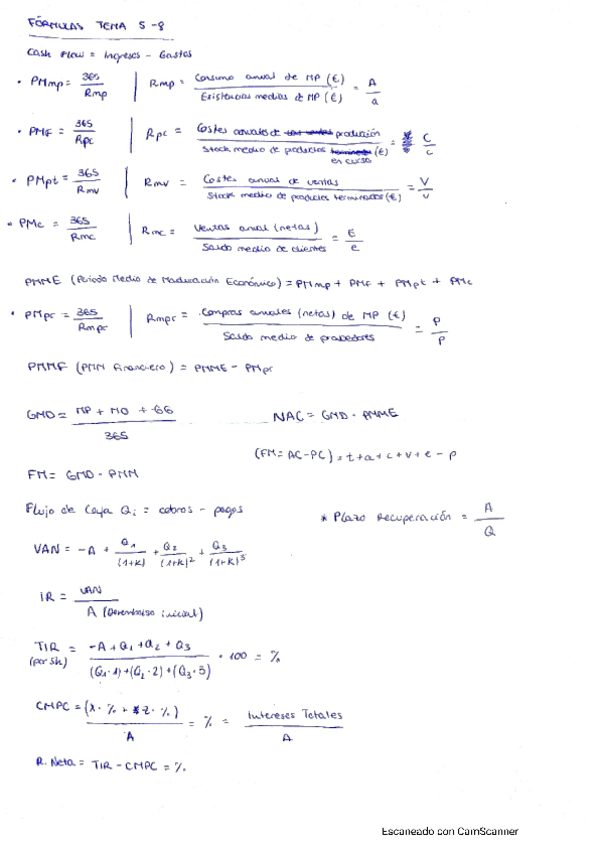 FÓRMULAS TEMA 5-8
Cash Flow = Ingresos - Gastos
• PMmp = 365 / Rmp | Rmp = Consumo anual de MP (€) / Existencias medias de MP (€) = A / a
• PMf = 365 / Rpc | Rpc = Costes anuales de producción / Stock medio de productos en curso (€) = C / c
• PMpt = 365 / Rmv | Rmv = Costes anual de ventas / Stock medio de productos terminados (€) = V / v
• PMc = 365 / Rmc | Rmc = Ventas anual (netas) / Saldo medio de clientes = E / e
PMME (Periodo Medio de Maduración Económico) = PMmp + PMf + PMpt + PMc
• PMpr = 365 / Rmpr | Rmpr = Compras anuales (netas) de MP (€) / Saldo medio de proveedores = P / p
PMMF (PMM Financiero) = PMME - PMpr
GMD = MP + MO + GG / 365 NAC = GMD · PMME
(FM = AC - PC) = t + a + c + v + e - p
FM = GMD · PMM
Flujo de Caja Qi = cobros - pagos * Plazo Recuperación = A / Q
VAN = -A + Q1 / (1+K) + Q2 / (1+K)² + Q3 / (1+K)³
IR = VAN / A (Desembolso inicial)
TIR = -A + Q1 + Q2 + Q3 / (Q1·1) + (Q2·2) + (Q3·3) · 100 = %
CMPC = (X · % + Z · %) / A = % = Intereses Totales / A
R. Neta = TIR - CMPC = %
Escaneado con CamScanner